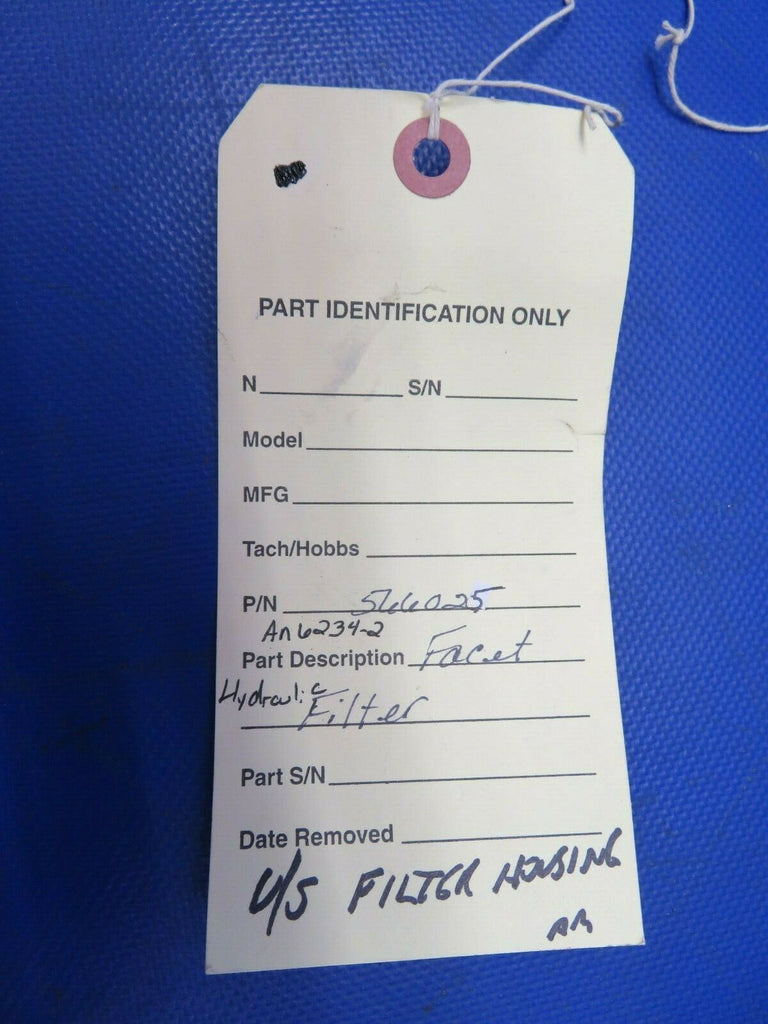 PART IDENTIFICATION ONLY
N S/N
Model
MFG
Tach/Hobbs
P/N 566025
An6234-2
Part Description Facet
Hydraulic Filter
Part S/N
Date Removed
U/S FILTER HOUSING